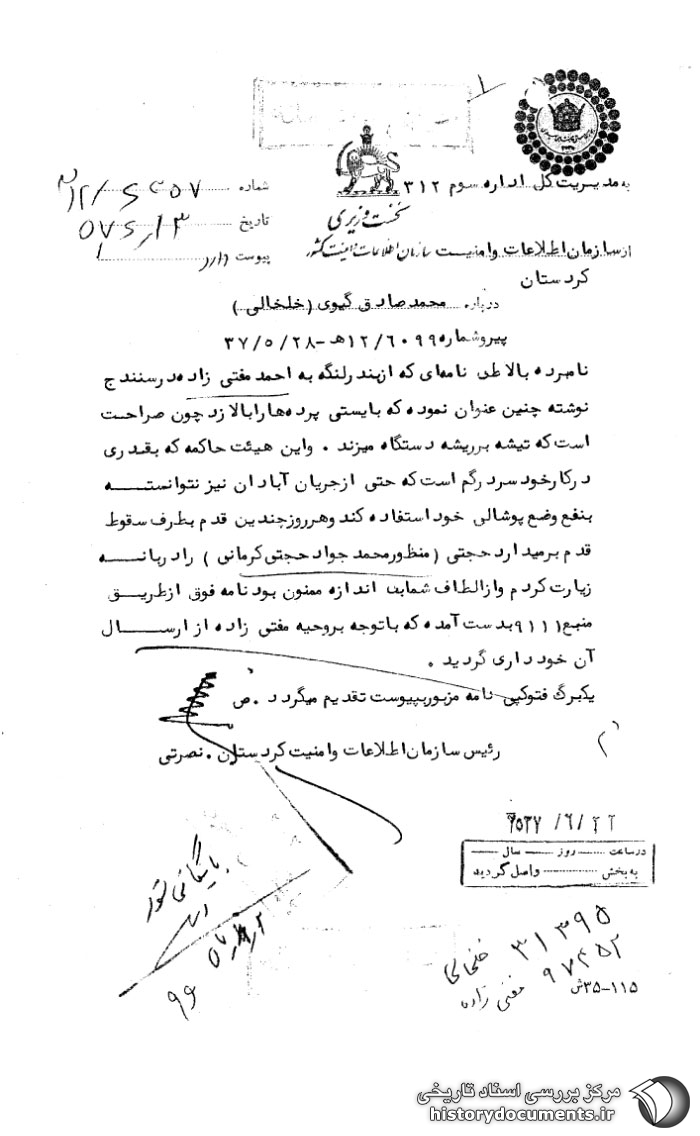 به مدیریت کل اداره سوم ۳۱۲
نخست وزیری
شماره
تاریخ
پیوست دارد
از سازمان اطلاعات و امنیت سازمان اطلاعات و امنیت کشور
کردستان
درباره محمد صادق گیوی (خلخالی)
پیرو شماره ۱۲/۶۰۹۹ هـ - ۳۷/۵/۲۸
نامبرده بالا طی نامه‌ای که از بندر لنگه به احمد مفتی زاده در سنندج
نوشته چنین عنوان نموده که بایستی پرده‌ها را بالا زد چون صراحت
است که تیشه بر ریشه دستگاه میزند . و این هیئت حاکمه که بقدری
در کار خود سردرگم است که حتی از جریان آبادان نیز نتوانسته
بنفع وضع پوشالی خود استفاده کند و هر روز چندین قدم بطرف سقوط
قدم بر میدارد حجتی (منظور محمد جواد حجتی کرمانی) را در بانه
زیارت کردم و از الطاف شما بی اندازه ممنون بود نامه فوق از طریق
منبع ۹۱۱۱ بدست آمده که با توجه بروحیه مفتی زاده از ارسال
آن خودداری گردید .
یکبرگ فتوکپی نامه مزبور بپیوست تقدیم میگردد . ص
رئیس سازمان اطلاعات و امنیت کردستان . نصرتی
در ساعت روز سال
به بخش واصل گردید
بایگانی شود
۳۱۳۹۵ خلخالی
۹۷۴۵۲ مفتی زاده
۳۵-۱۱۵ش
۹۶
مرکز بررسی اسناد تاریخی
historydocuments.ir